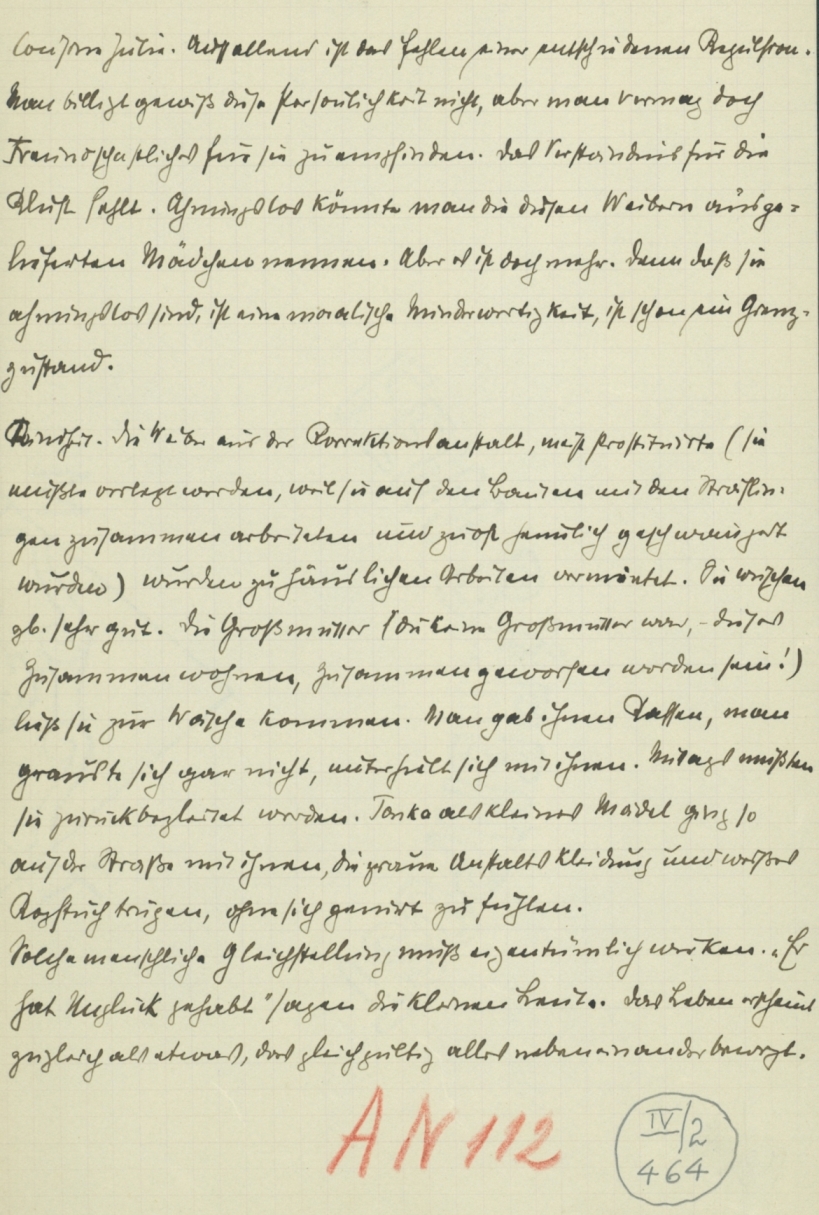 Cousine Julie. Auffallend ist das Fehlen einer entschiedenen Repulsion.
Man billigt gewiß diese Persönlichkeit nicht, aber man vermag doch
Freundschaftliches für sie zu empfinden. Das Verständnis für die
Kluft fehlt. Ahnungslos könnte man die diesen Weibern ausge=
lieferten Mädchen nennen. Aber es ist doch mehr. Denn daß sie
ahnungslos sind, ist eine moralische Minderwertigkeit, ist schon ein Grenz-
zustand.
Kindheit. Die Weiber aus der Korrektionsanstalt, meist Prostituierte (sie
mußte verlegt werden, weil sie auf den Bauten mit den Sträflin-
gen zusammen arbeiteten und zu oft heimlich geschwängert
wurden) wurden zu häuslichen Arbeiten vermietet. Sie wuschen
zb. sehr gut. Die Großmutter (die keine Großmutter war, – dieses
Zusammenwohnen, Zusammengeworfen worden sein!)
ließ sie zur Wäsche kommen. Man gab ihnen Kaffee, man
grauste sich gar nicht, unterhielt sich mit ihnen. Mittags mußten
sie zurückbegleitet werden. Tonka als kleines Mädel ging so
auf der Straße mit ihnen, die graue Anstaltskleidung und weißes
Kopftuch trugen, ohne sich geniert zu fühlen.
Solche menschliche Gleichstellung muß eigentümlich wirken. „Er
hat Unglück gehabt" sagen die kleinen Leute. Das Leben erscheint
zugleich als etwas, das gleichgültig alles nebeneinander bewegt.
AN 112
IV/2
464